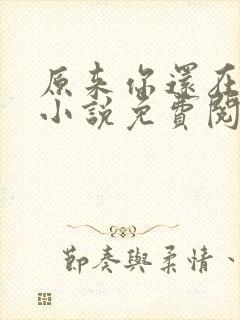 原來你還在
小說免費閱
節奏與柔情、